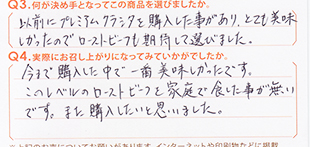 Q3.何が決め手となってこの商品を選びましたか?
以前にプレミアムクラシタを購入した事があり、とても美味
しかったのでローストビーフも期待して選びました。
Q4.実際にお召し上がりになってみていかがでしたか?
今まで購入した中で一番美味しかったです。
このレベルのローストビーフを家庭で食した事が無い
です。また購入したいと思いました。